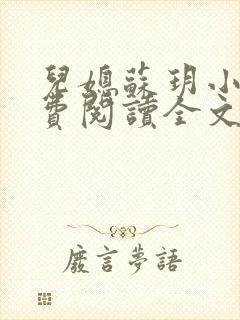 兒媳蘇玥小
費閱讀全文
廢言夢語